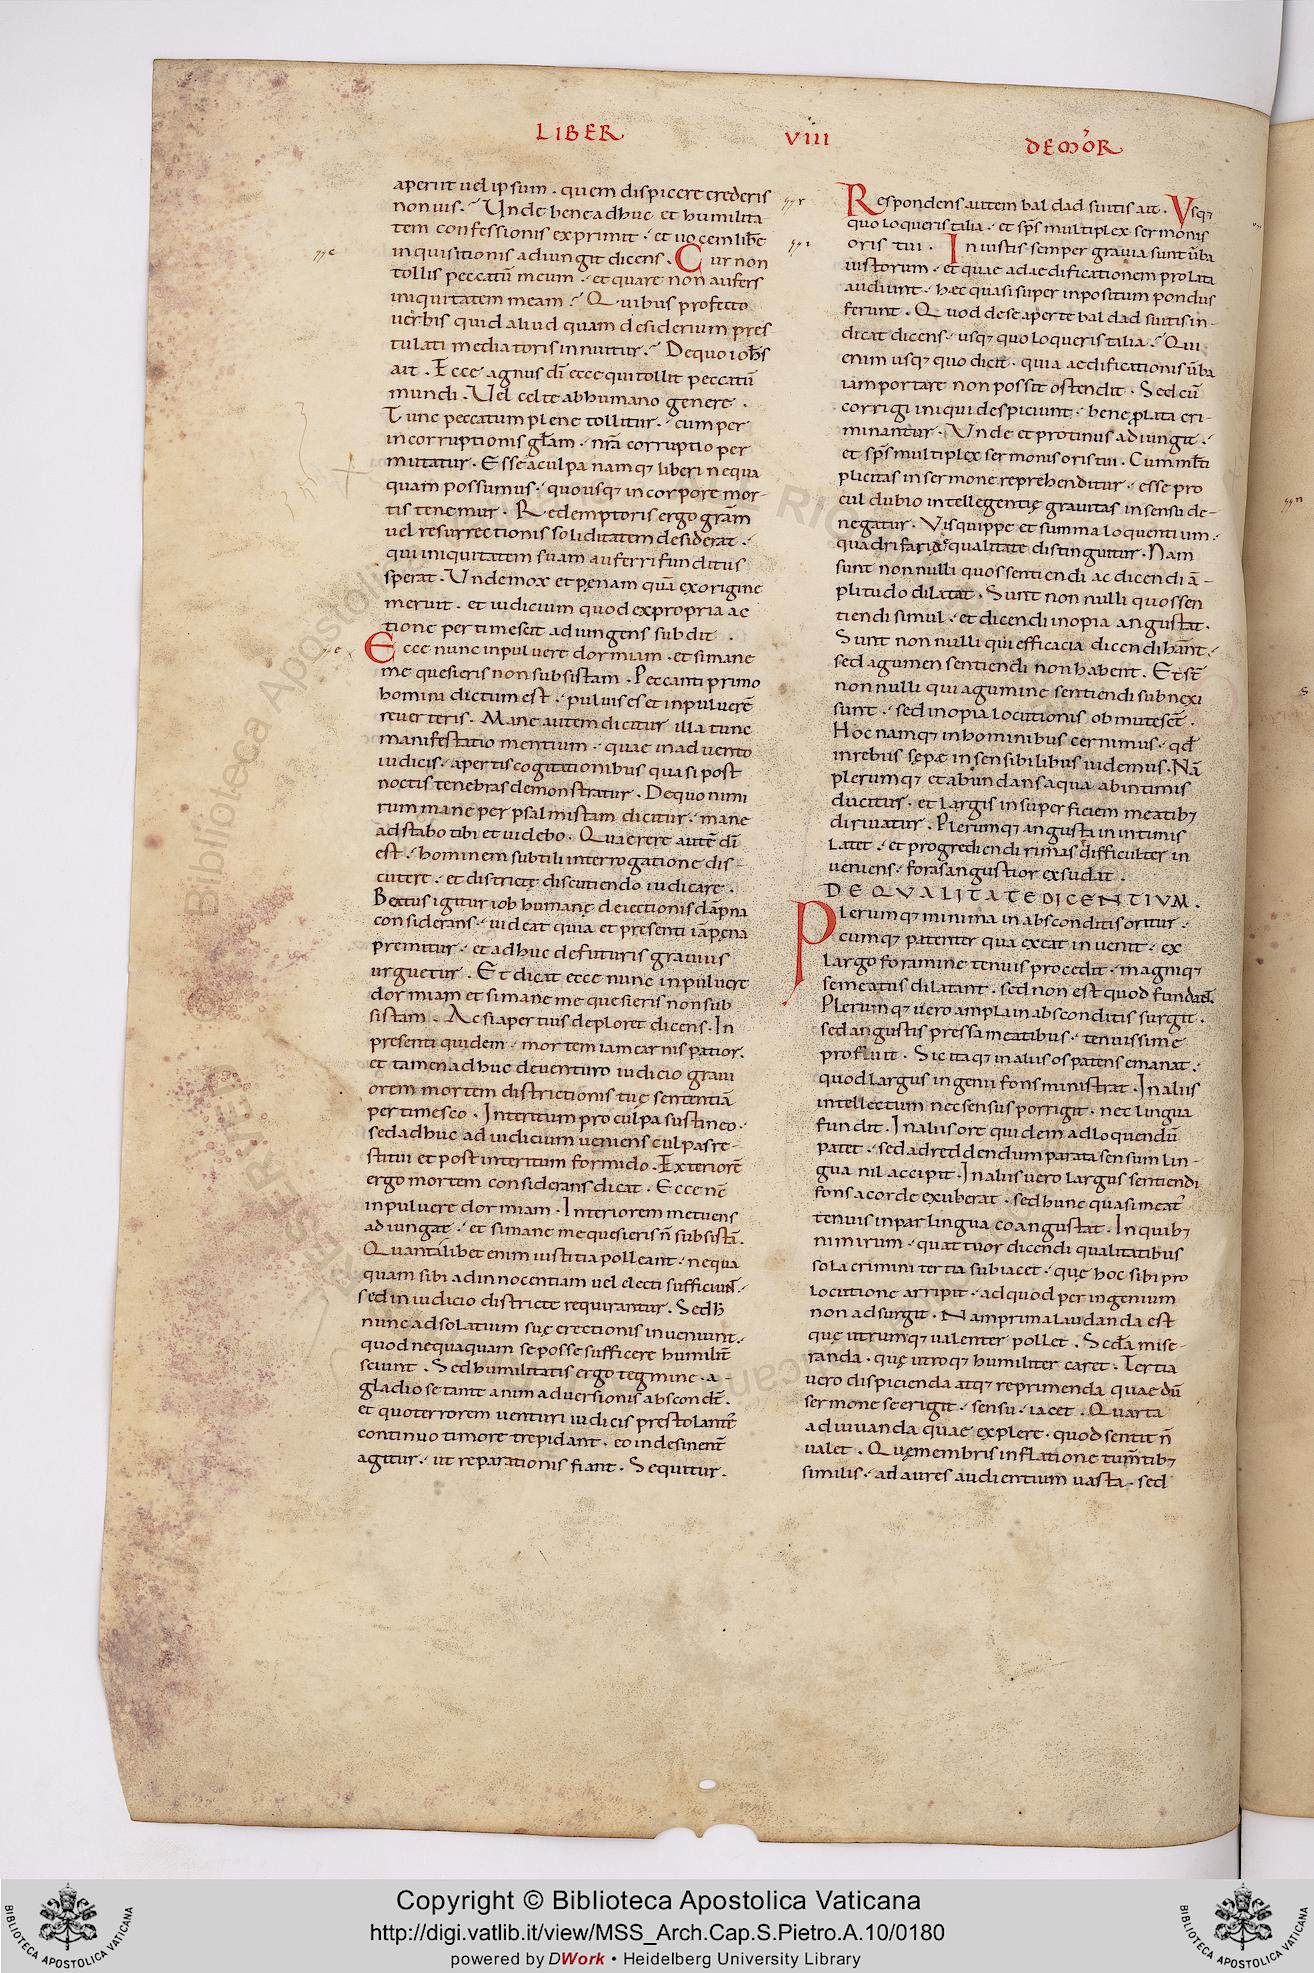 LIBER VIII DE MOR
aperiit uel ipsum . quem dispicere crederis
non uis . Unde bene adhuc et humilita
tem confessionis exprimit . et uocem libe
inquisitionis adiungit dicens . Cur non
tollis peccatū meum . et quare non aufers
iniquitatem meam . Quibus profecto
uerbis quid aliud quam desiderium pres
tulati mediatoris innuitur . De quo iohs
ait . Ecce agnus dī ecce qui tollit peccatū
mundi . Vel certe ab humano genere .
Tunc peccatum plene tollitur . cum per
incorruptionis glam . nrā corruptio per
mutatur . Esse a culpa namq; liberi nequa
quam possumus . quousq; in corpore mor-
tis tenemur . Redemptoris ergo gram
uel resurrectionis soliditatem desiderat .
qui iniquitatem suam auferri funditus
sperat . Unde mox et pęnam quā ex origine
meruit . et iudicium quod ex propria ac
tione pertimescit adiungens subdit .
Ecce nunc in puluere dormiam . et si mane
me quesieris non subsistam . Peccanti primo
homini dictum est . puluis es et in puluerē
reuerteris . Mane autem dicitur illa tunc
manifestatio mentium . quae in aduento
iudicis . apertis cogitationibus quasi post
noctis tenebras demonstratur . De quo nimi
rum mane per psalmistam dicitur . mane
adstabo tibi et uidebo . Quaerere autē dī
est . hominem subtili interrogatione dis-
cutere . et districtę discutiendo iudicare .
Beatus igitur iob humanę deiectionis dāpna
considerans . uideat quia et presenti iā pęna
premitur . et adhuc de futuris grauius
urguetur . Et dicat ecce nunc in puluere
dormiam et si mane me quesieris non sub
sistam . Ac si apertius deploret dicens . In
presenti quidem . mortem iam carnis patior .
et tamen adhuc de uenturo iudicio graui
orem mortem districtionis tuę sententiā
pertimesco . Interitum pro culpa sustineo .
sed adhuc ad iudicium ueniens culpas re-
stitui et post interitum formido . Exteriorē
ergo mortem considerans dicat . Ecce nc̄
in puluere dormiam . Interiorem metuens
adiungat . et si mane me quesieris n̄ subsistā .
Quantalibet enim iustitia polleant . nequa
quam sibi ad innocentiam uel electi sufficiunt .
sed in iudicio districte requirantur . Sed h
nunc ad solatium suę erectionis inueniunt .
quod nequaquam se posse sufficere humilit̄
sciunt . Sed humilitatis ergo tegmine . a -
gladio se tante animaduersionis abscondt̄ .
et quo terrorem uenturi iudicis prestolantr̄
continuo timore trepidant . eo indesinent̄
agitur . ut reparationis fiant . Sequitur .
Respondens autem baldad suitis ait . Vsq;
quo loqueris talia . et sp̄s multiplex sermonis
oris tui . Iniustis semper grauia sunt ūba
iustorum . et quae ad aedificationem prolata
audiunt . hęc quasi superinpositum pondus
ferunt . Quod de se aperte baldad suitis in-
dicat dicens . usq; quo loqueris talia . Qui
enim usq; quo dicit . quia aedificationis ūba
iam portare non possit ostendit . Sed cū
corrigi iniqui despiciunt . bene plata cri-
minantur . Vnde et protinus adiungit .
et sp̄s multiplex sermonis oris tui . Cum mlti
plicitas in sermone reprehenditur . esse pro
cul dubio intellegentię grauitas in sensu de-
negatur . Vis quippe et summa loquentium .
quadrifaria qualitate distinguitur . Nam
sunt non nulli quos sentiendi ac dicendi ā-
plitudo dilatat . Sunt non nulli quos sen
tiendi simul . et dicendi inopia angustat .
Sunt non nulli qui efficacia dicendi habent .
sed agumen sentiendi non habent . Et st̄
non nulli qui agumine sentiendi subnexi
sunt . sed inopia locutionis obmutesct̄ .
Hoc namq; in hominibus cernimus . qd̄
in rebus sępe insensibilibus uidemus . Nā
plerumq; et abundans aqua ab intimis
ducitur . et largis in superficiem meatib;
diriuatur . Plerumq; angusta in intimis
latet . et progrediendi rimas difficulter in
ueniens . foras angustior exsudat .
DE QVALITATE DICENTIVM .
Plerumq; minima in absconditis oritur .
cumq; patenter qua exeat inuenit . ex
largo foramine tenuis procedit . magniq;
se meatus dilatant . sed non est quod fundant .
Plerumq; uero ampla in absconditis surgit .
sed angustis pressa meatibus . tenuissime
profluit . Sic itaq; in aliis os patens emanat .
quod largus ingenii fons ministrat . In aliis
intellectum nec sensus porrigit . nec lingua
fundit . In aliis ore quidem ad loquendū
patet . sed ad reddendum parata sensum lin-
gua nil accipit . In aliis uero largus sentiendi
fons a corde exuberat . sed hunc quasi meat
tenuis inpar lingua coangustat . In quib;
nimirum . quattuor dicendi qualitatibus
sola crimini tertia subiacet . quę hoc sibi pro
locutione arripit . ad quod per ingenium
non adsurgit . Nam prima laudanda est
quę utrumq; ualenter pollet . Scda mise-
randa . quę utroq; humiliter caret . Tertia
uero dispicienda atq; reprimenda quae dū
sermone se erigit . sensu . iacet . Quarta
adiuuanda quae explere . quod sentit n̄
ualet . Quę membris inflatione tum̄tib;
similis . ad aures audientium uasta . sed
Copyright © Biblioteca Apostolica Vaticana
http://digi.vatlib.it/view/MSS_Arch.Cap.S.Pietro.A.10/0180
powered by DWork • Heidelberg University Library
BIBLIOTECA APOSTOLICA VATICANA
BIBLIOTECA APOSTOLICA VATICANA